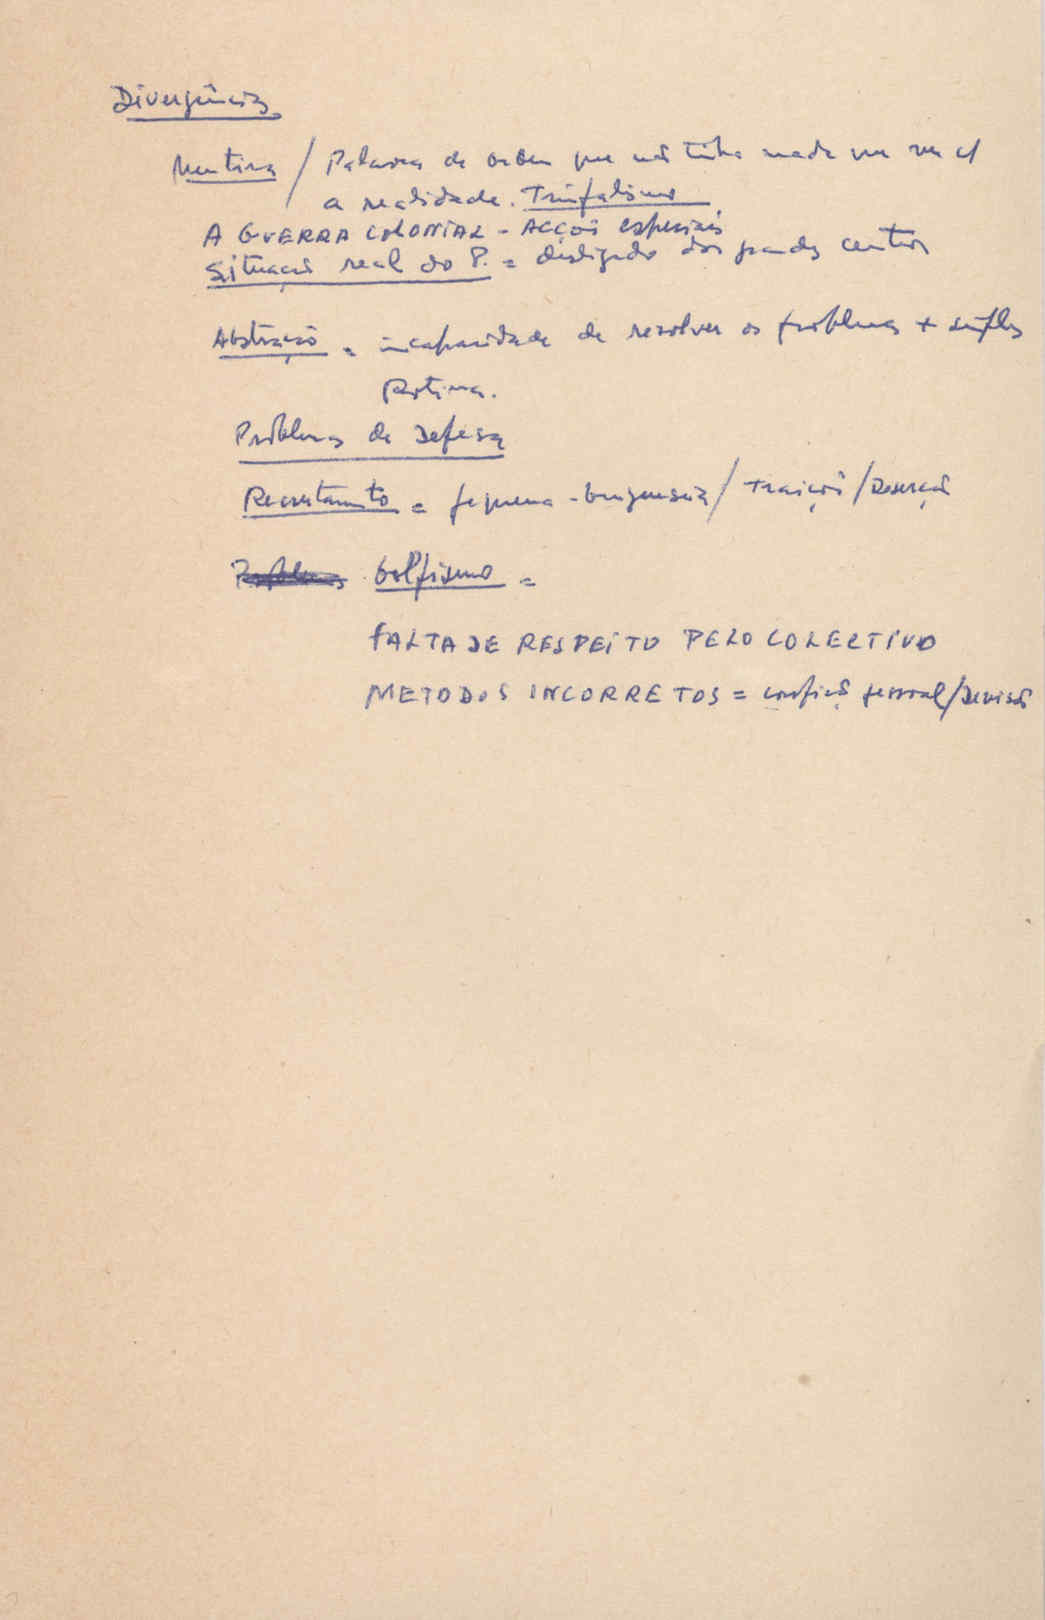 Divergências
Mentira / Palavras de ordem que não tinha nada que ver c/
a realidade. Triunfalismo
A GUERRA COLONIAL - ACÇÕES especiais
Situação real do P. = desligado dos grandes centros
Abstração = incapacidade de resolver os problemas + simples
Rotina.
Problemas de Defesa
Recrutamento = pequena-burguesia / Traições / Deserção
Problemas Golpismo =
FALTA DE RESPEITO PELO COLECTIVO
METODOS INCORRETOS = pessoal / Divisão